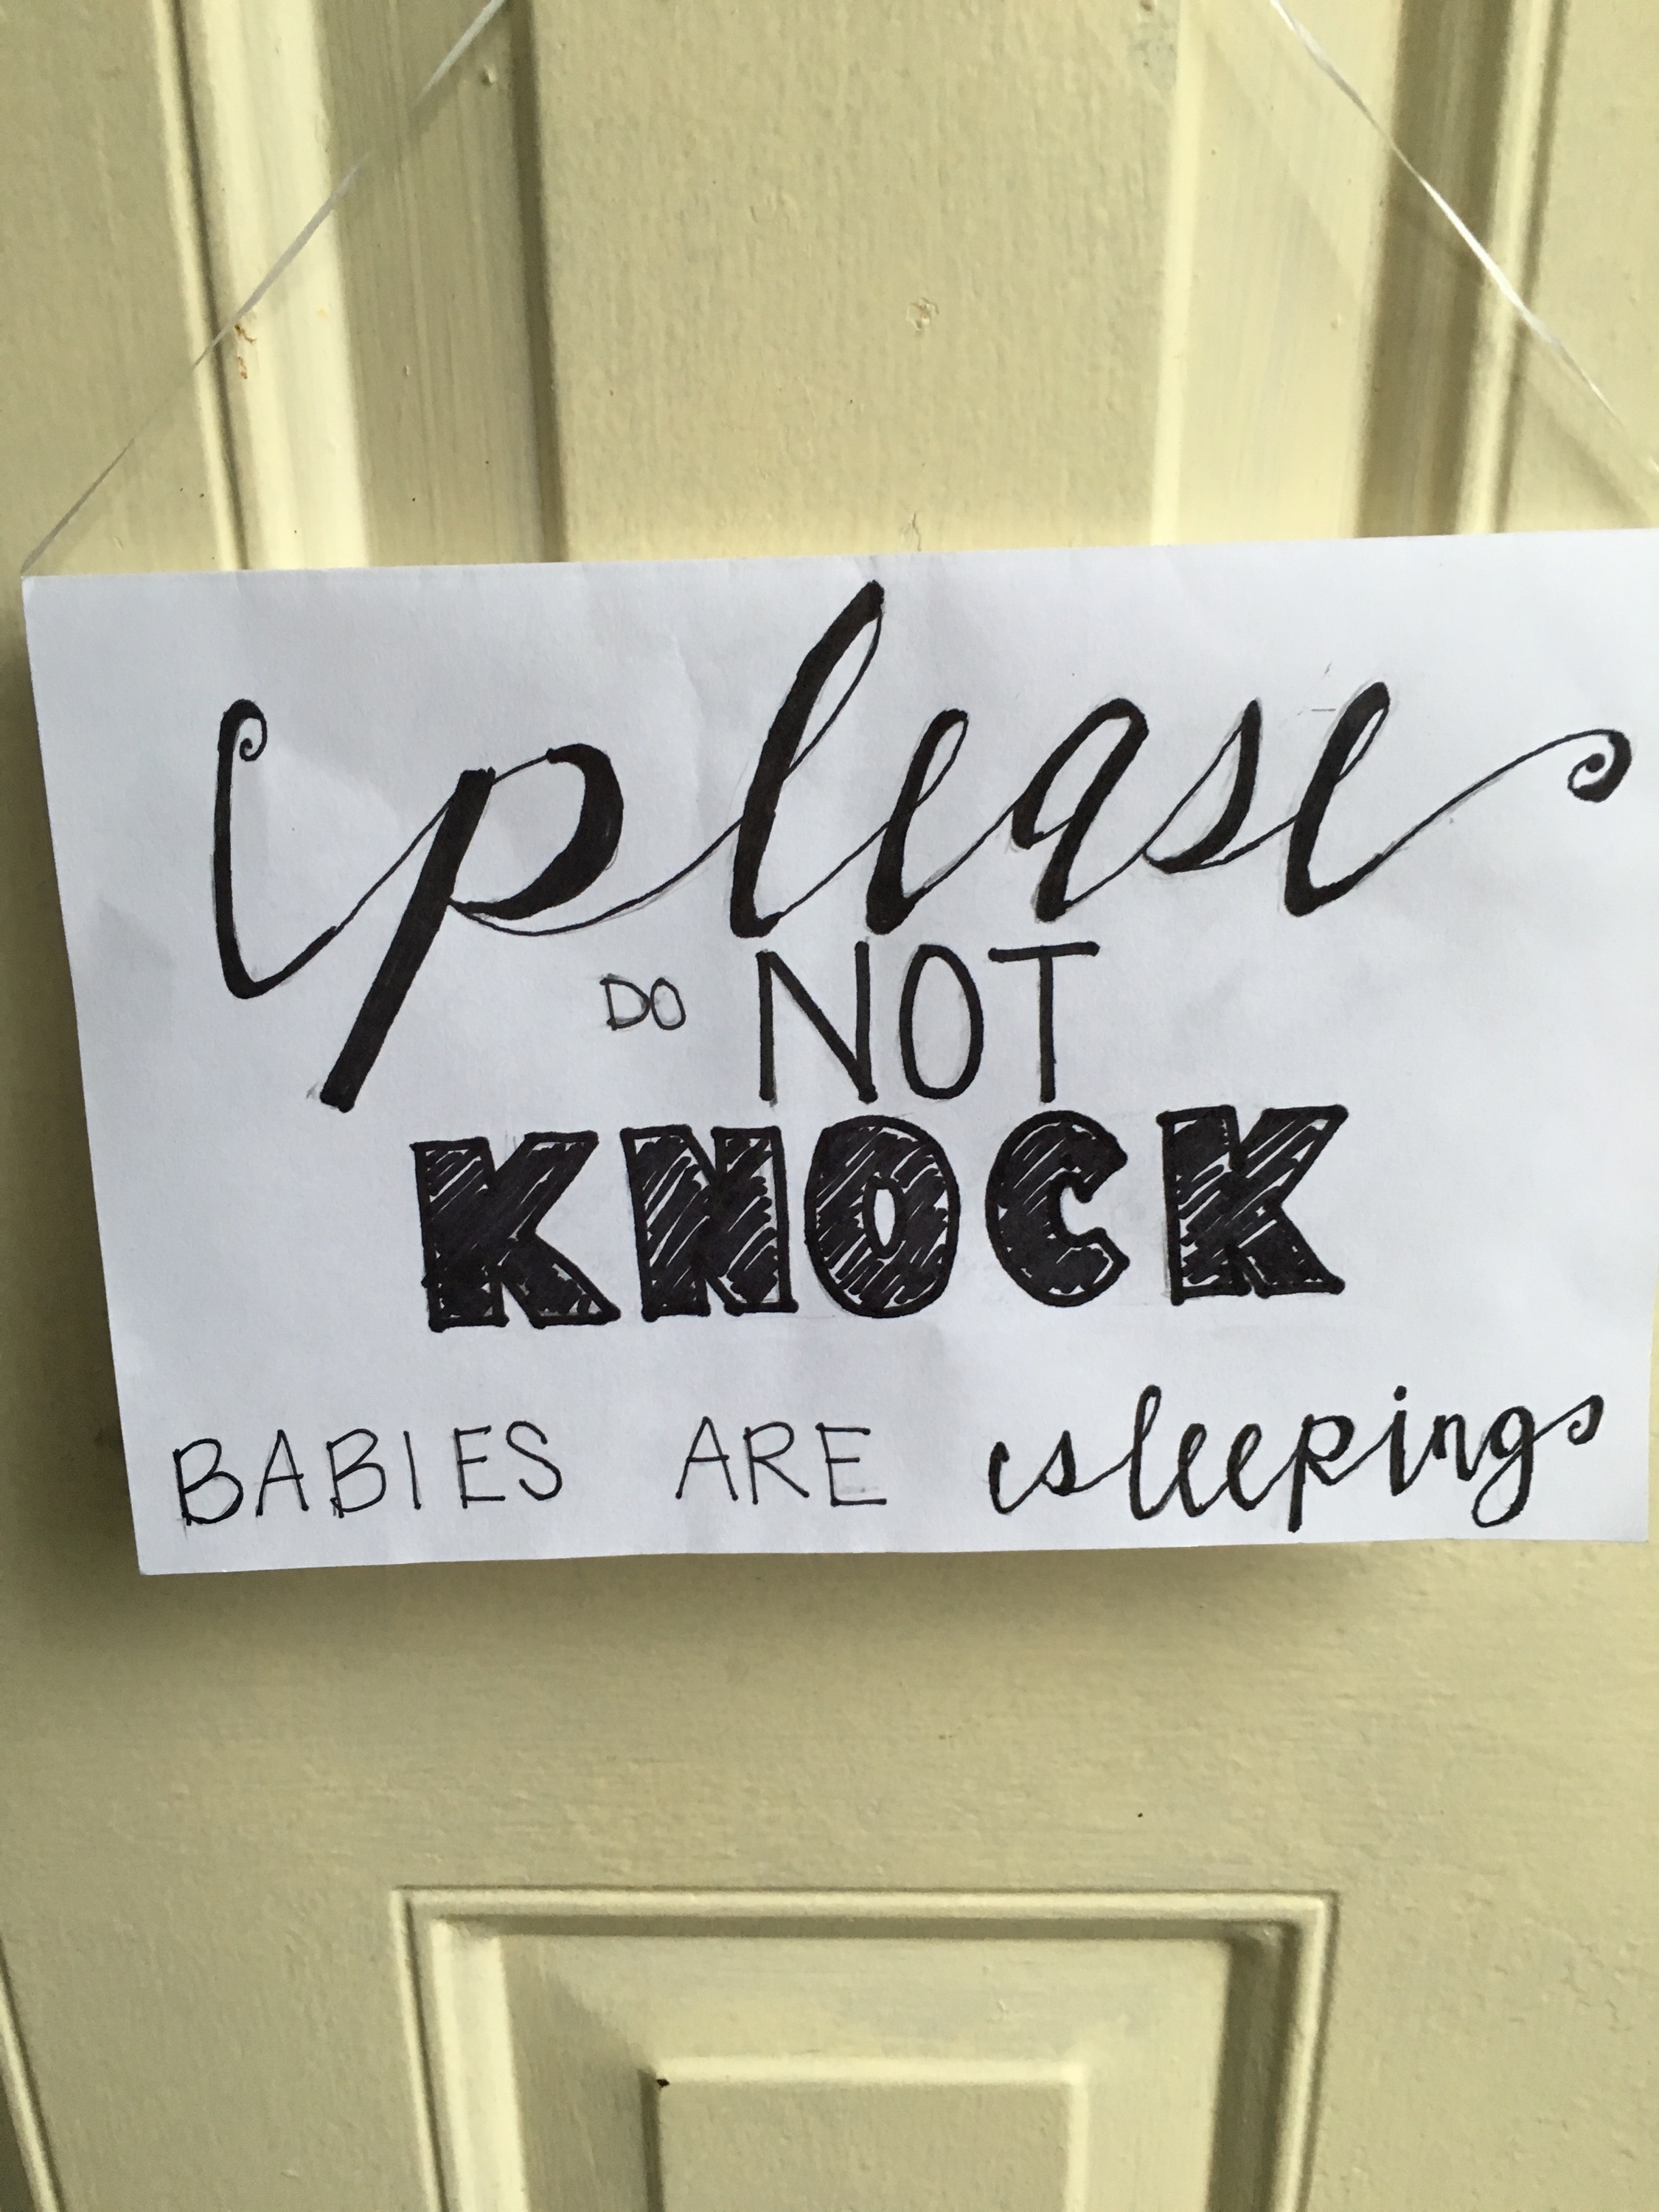 please
DO NOT
KNOCK
BABIES ARE sleeping